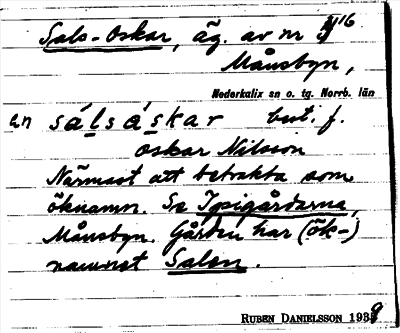 Sals-Oskar, äg. av nr 16
Månsbyn,
Nederkalix sn o. tg. Norrb. län
en sálsáskar best. f.
Oskar Nilsson
Närmast att betrakta som
öknamn. Se Typigårdarna,
Månsbyn. Gården har (ök-)
namnet Salen.
RUBEN DANIELSSON 1939